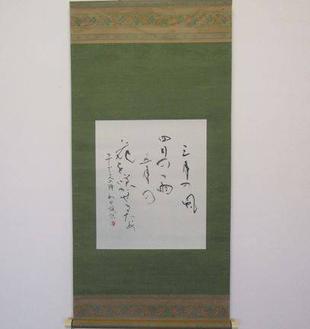 三月の風
四月の雨
五月の
花を咲かせるため